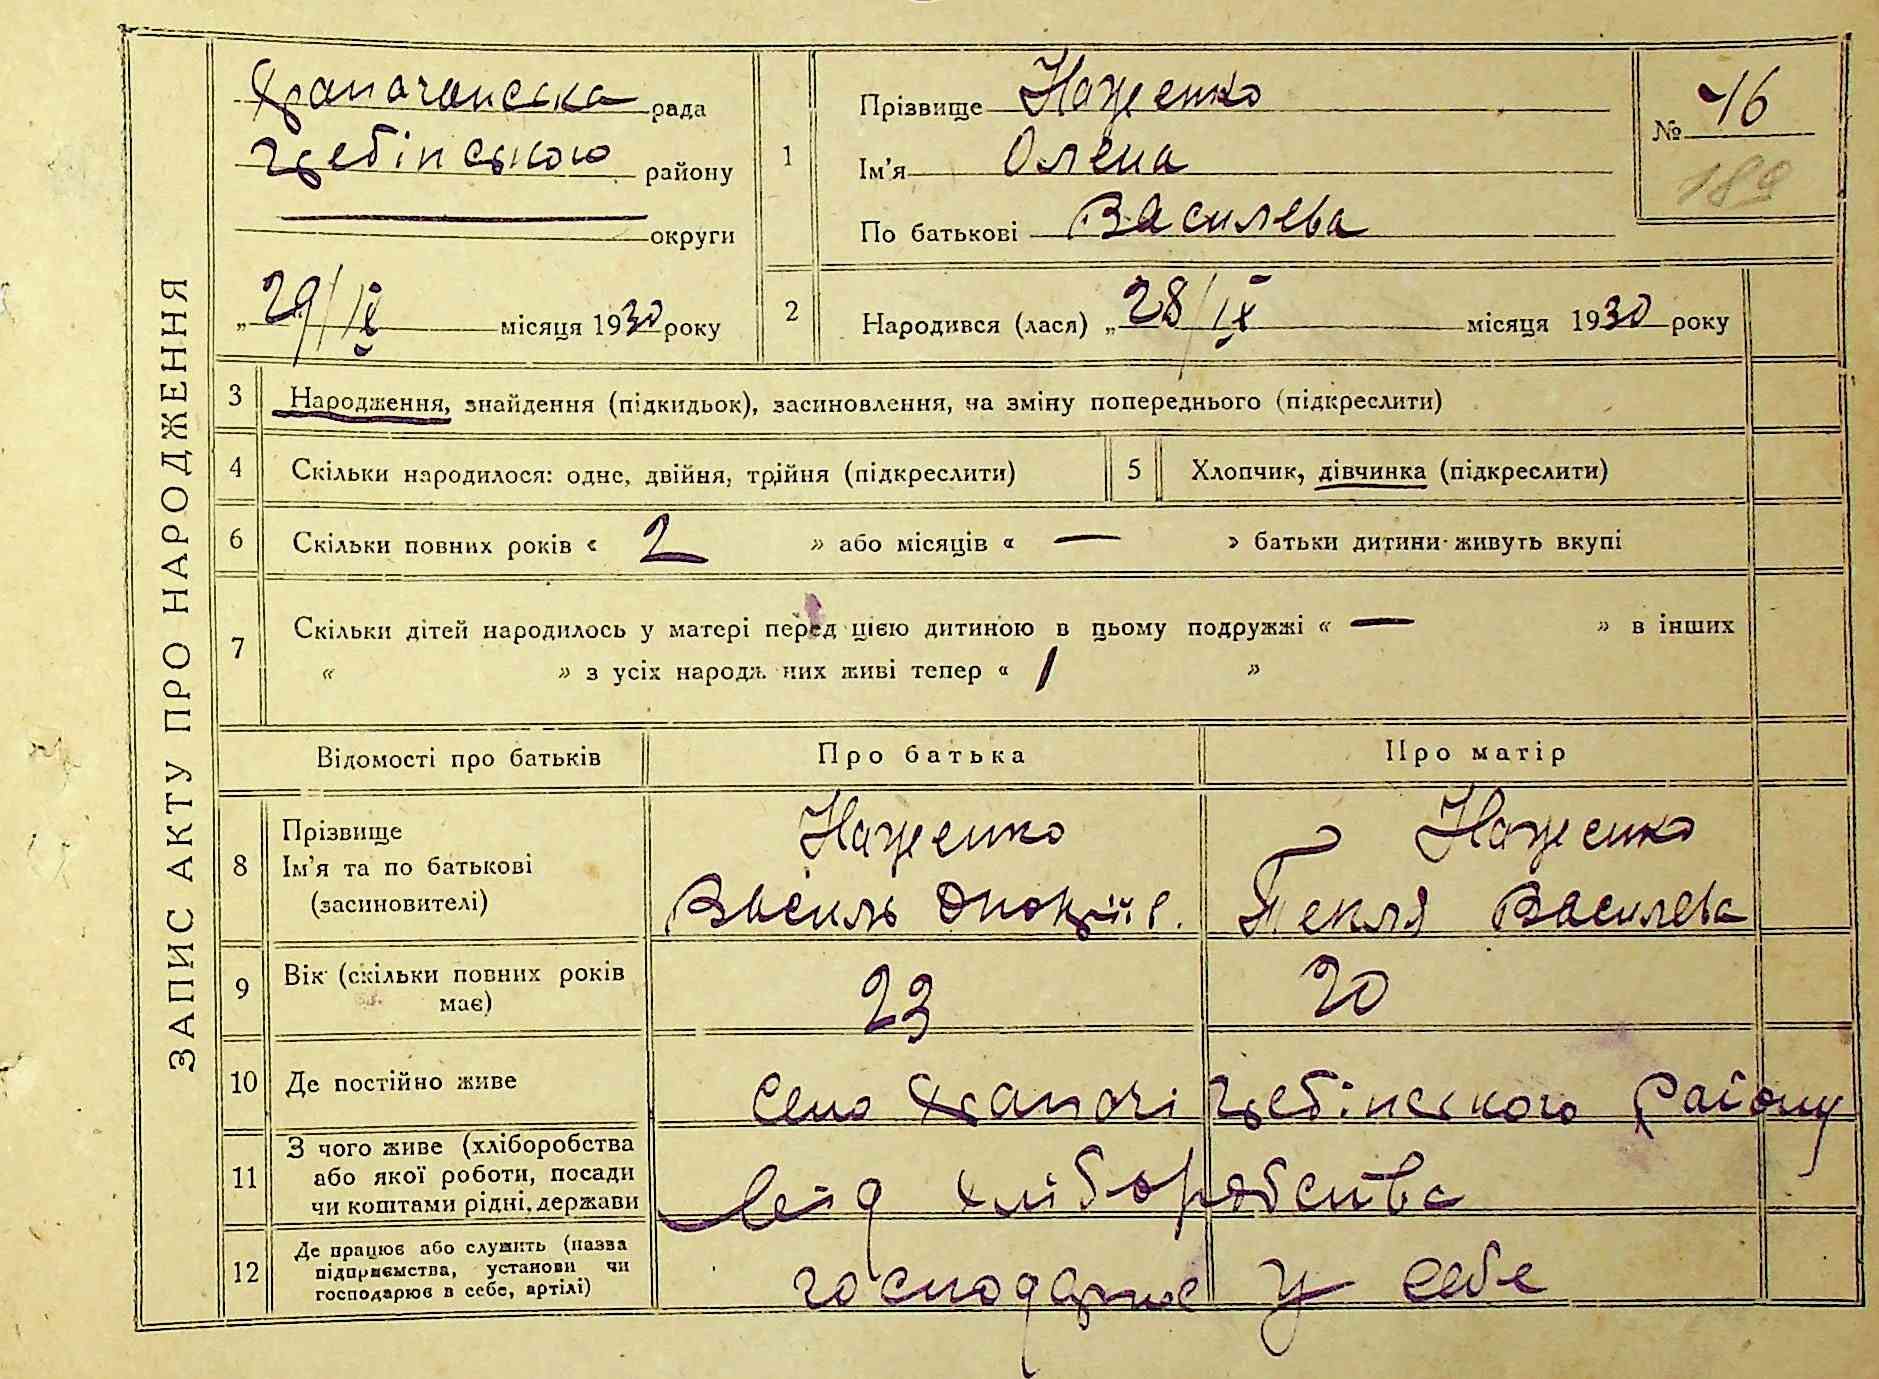 ЗАПИС АКТУ ПРО НАРОДЖЕННЯ
Храпачанська рада
району
округи
„ 29/IX місяця 1930 року
1
Прізвище Наженко
Ім'я Олена
По батькові Василева
№ 16
189
2
Народився (лася) „ 28/IX місяця 1930 року
3 Народження, знайдення (підкидьок), засиновлення, на зміну попереднього (підкреслити)
4 Скільки народилося: одне, двійня, трійня (підкреслити)
5 Хлопчик, дівчинка (підкреслити)
6 Скільки повних років « 2 » або місяців « — » батьки дитини живуть вкупі
7 Скільки дітей народилось у матері перед цією дитиною в цьому подружжі « — » в інших
« » з усіх народж них живі тепер « 1 »
Відомості про батьків Про батька Про матір
8 Прізвище
Ім'я та по батькові
(засиновителі)
Наженко
Василь
Наженко
Текля Василева
9 Вік (скільки повних років
має)
23 20
10 Де постійно живе село Храпачі району
11 З чого живе (хліборобства
або якої роботи, посади
чи коштами рідні, держави
від хліборобства
12 Де працює або служить (назва
підприємства, установи чи
господарює в себе, артілі)
господарює у себе